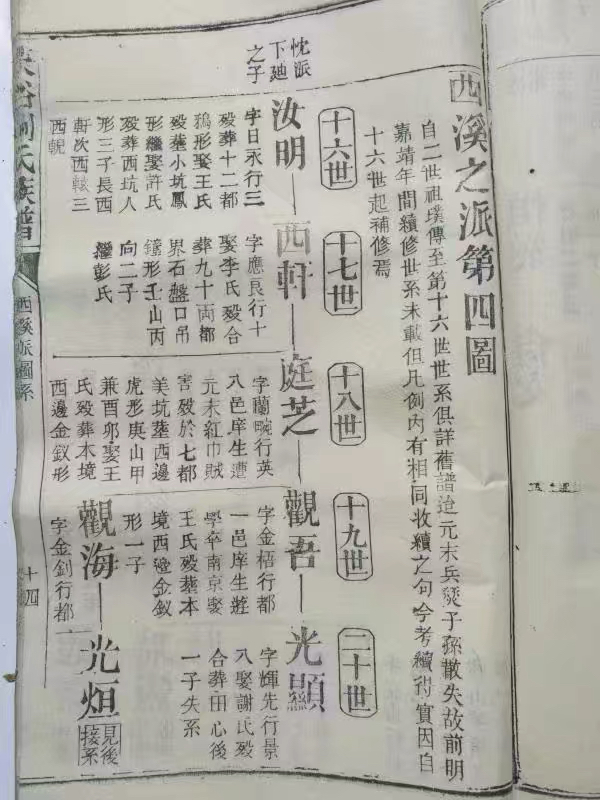 西溪之派第四圖
自二世祖璞傳至第十六世世系俱詳舊譜迨元末兵燹子孫散失故前明
嘉靖年間續修世系未載但凡例內有相同收續之句今考續得實因自
十六世起補修焉
十六世
十七世
十八世
十九世
二十世
忱派
下廸
之子
汝明
字日永行三
歿葬十二都
鵶形娶王氏
歿塟小坑鳳
形繼娶許氏
歿葬西坑人
形三子長西
軒次西輆三
西輗
西軒
字應良行十
娶李氏歿合
葬九十両都
界石盤口吊
鐘形壬山丙
向二子
繼彭氏
庭芝
字蘭畹行英
八邑庠生遭
元末紅巾賊
害歿於七都
美坑塟西邊
虎形庚山甲
兼酉卯娶王
氏歿葬本境
西邊金釵形
觀吾
字金梧行都
一邑庠生遊
學卒南京娶
王氏歿塟本
境西邊金釵
形一子
光顯
字輝先行景
八娶謝氏歿
合葬田心後
一子失系
觀海
字金釗行都一
光烜
見後
接系
劉氏族譜
西溪派圖系
十四